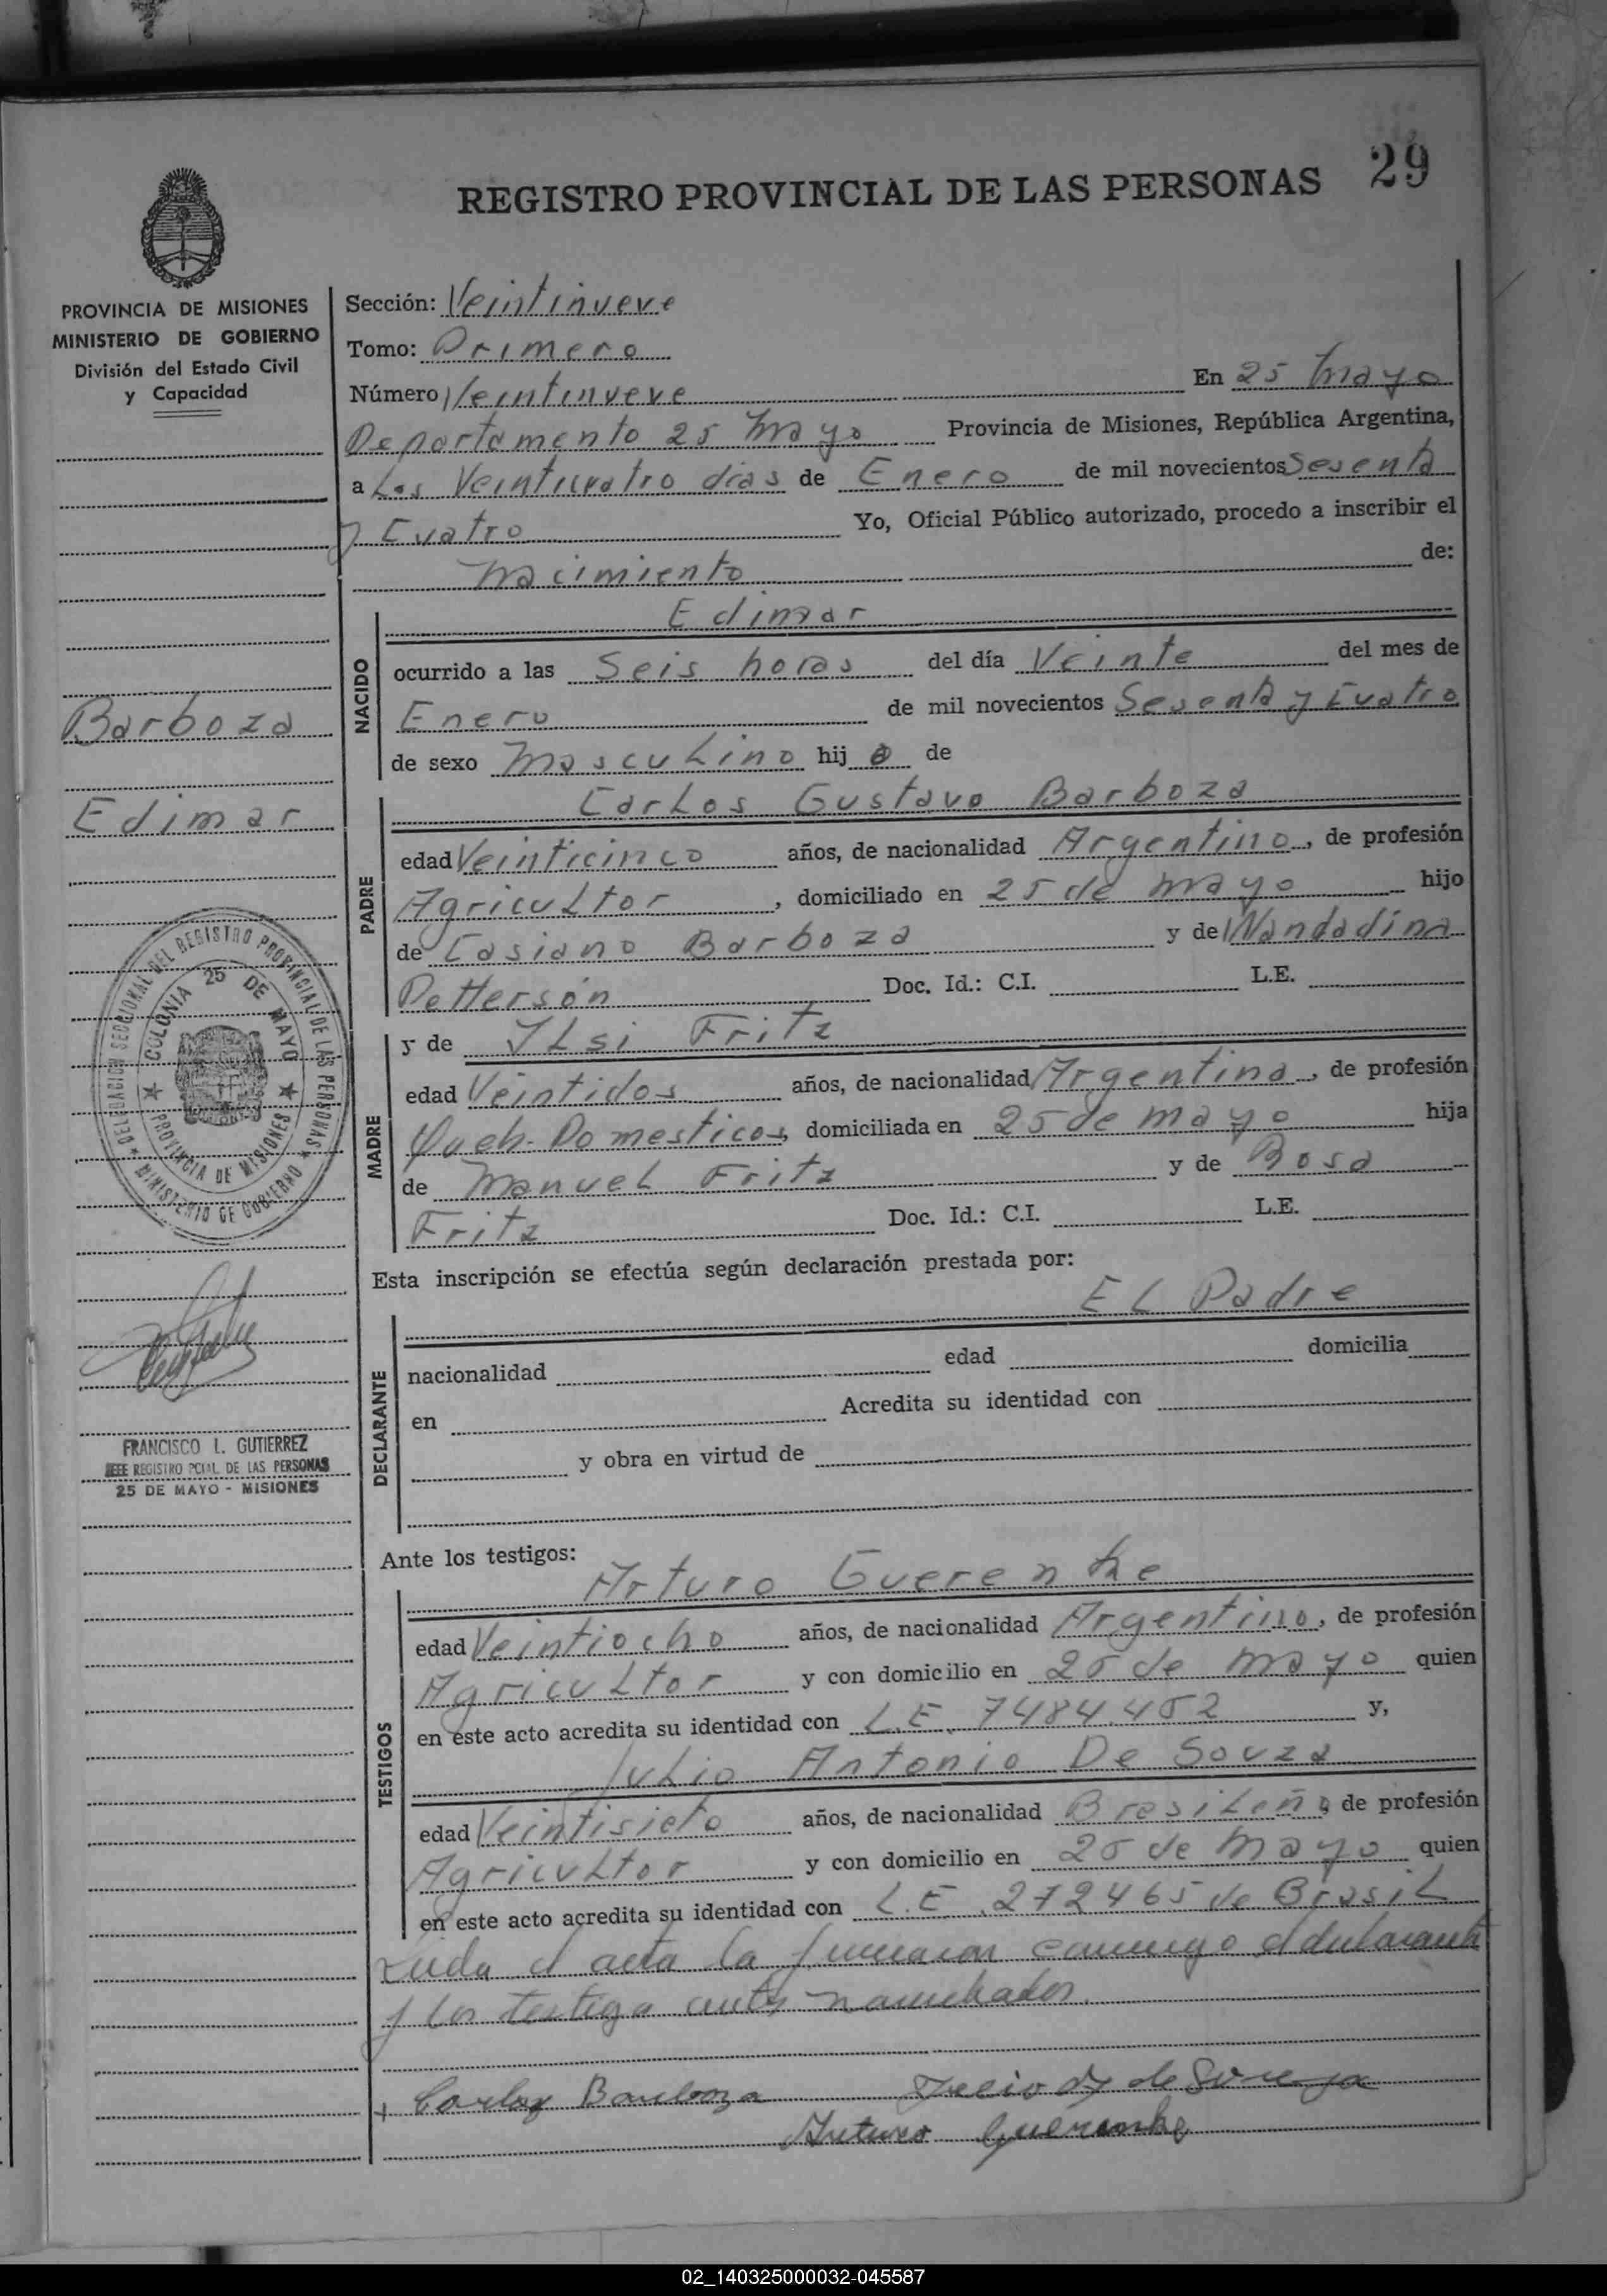 29
REGISTRO PROVINCIAL DE LAS PERSONAS
PROVINCIA DE MISIONES
MINISTERIO DE GOBIERNO
División del Estado Civil
y Capacidad
Sección: Veintinueve
Tomo: Primero
Número Veintinueve En 25 Mayo
Departamento 25 Mayo Provincia de Misiones, República Argentina,
a Los Veinticuatro dias de Enero de mil novecientos Sesenta
y Cuatro Yo, Oficial Público autorizado, procedo a inscribir el
Nacimiento de:
NACIDO
Edimar
ocurrido a las Seis horas del día Veinte del mes de
Enero de mil novecientos Sesenta y Cuatro
de sexo Masculino hijo de
Barboza
Edimar
PADRE
Carlos Gustavo Barboza
edad Veinticinco años, de nacionalidad Argentino, de profesión
Agricultor, domiciliado en 25 de Mayo hijo
de Casiano Barboza y de Wandadina
Pettersón Doc. Id.: C.I. L.E.
MADRE
y de Ylsi Fritz
edad Veintidos años, de nacionalidad Argentina, de profesión
Queh. Domesticos, domiciliada en 25 de Mayo hija
de Manuel Fritz y de Rosa
Fritz Doc. Id.: C.I. L.E.
DELEGACION SECCIONAL DEL REGISTRO PROVINCIAL DE LAS PERSONAS
MINISTERIO DE GOBIERNO
COLONIA 25 DE MAYO
PROVINCIA DE MISIONES
Esta inscripción se efectúa según declaración prestada por:
El Padre
DECLARANTE
nacionalidad edad domicilia
en Acredita su identidad con
y obra en virtud de
FRANCISCO I. GUTIERREZ
JEFE REGISTRO PCIAL. DE LAS PERSONAS
25 DE MAYO - MISIONES
Ante los testigos:
TESTIGOS
Arturo Guerenke
edad Veintiocho años, de nacionalidad Argentino, de profesión
Agricultor y con domicilio en 25 de Mayo quien
en este acto acredita su identidad con L.E. 7484.452 y,
Julio Antonio De Souza
edad Veintisiete años, de nacionalidad Brasileño, de profesión
Agricultor y con domicilio en 25 de Mayo quien
en este acto acredita su identidad con L.E. 272465 de Brasil
Leida el acta la firmaron conmigo el declarante
y los testigo antes nombrados.
Carlos Barboza
Arturo Guerenke
02_140325000032-045587